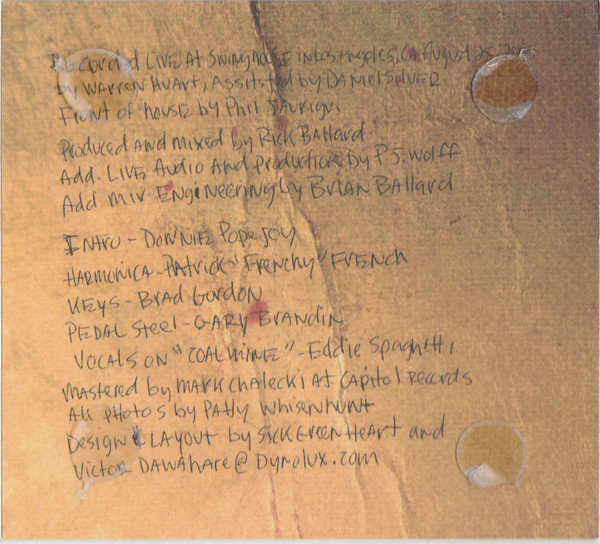 Recorded LIVE At Swinghouse in Los Angeles, CA August 25
by Warren Huart, Assitsted by Daniel Silver
Front of house by Phil
Produced and mixed by Rick Ballard
Add. LIVE Audio And production by PJ. Wolff
Add mix Engineering by Brian Ballard
Intro - Donnie Popejoy
Harmonica - Patrick "Frenchy" French
Keys - Brad Gordon
Pedal Steel - Gary Brandin
Vocals on "COALMINE" - Eddie Spaghetti
Mastered by Mark Chalecki At Capitol Records
All Photos by Patty Whisenhunt
Design & Layout by SickGreenHeart and
Victor Dawahare@Dynolux.com